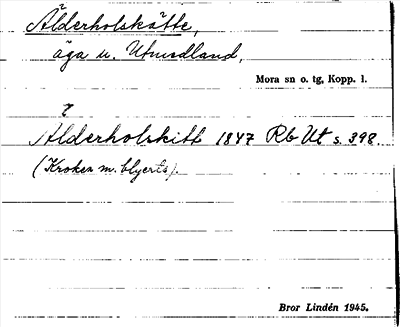 Älderholskätte,
äga u. Utmedland,
Mora sn o. tg, Kopp. l.
?
Alderholskitt 1847 Rb Ut s. 398
(Kroken m. blyerts).
Bror Lindén 1945.